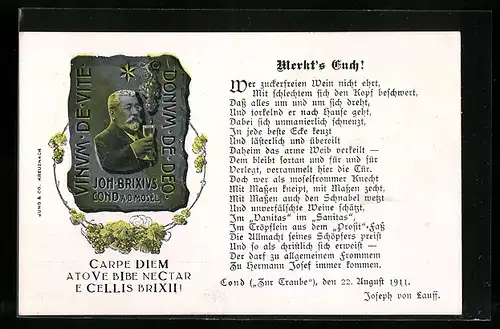 VINVM · DE · VITE
DONVM · DE · DEO
JOH · BRIXIVS
COND A·D·MOSEL
JUNG & CO. KREUZNACH
CARPE DIEM
ATOVE BIBE NECTAR
E CELLIS BRIXII!
Merkt's Euch!
Wer zuckerfreien Wein nicht ehrt,
Mit schlechtem sich den Kopf beschwert,
Daß alles um und um sich dreht,
Und torkelnd er nach Hause geht,
Dabei sich unmanierlich schneuzt,
In jede beste Ecke keuzt
Und lästerlich und übereilt
Daheim das arme Weib verkeilt —
Dem bleibt fortan und für und für
Verlegt, verrammelt hier die Tür.
Doch wer als moselfrommer Knecht
Mit Maßen kneipt, mit Maßen zecht,
Mit Maßen auch den Schnabel wetzt
Und unverfälschte Weine schätzt,
Im „Vanitas“ im „Sanitas“,
Im Tröpflein aus dem „Prosit“-Faß
Die Allmacht seines Schöpfers preist
Und so als christlich sich erweist —
Der darf zu allgemeinem Frommen
Zu Hermann Josef immer kommen.
Cond („Zur Traube“), den 22. August 1911.
Joseph von Lauff.